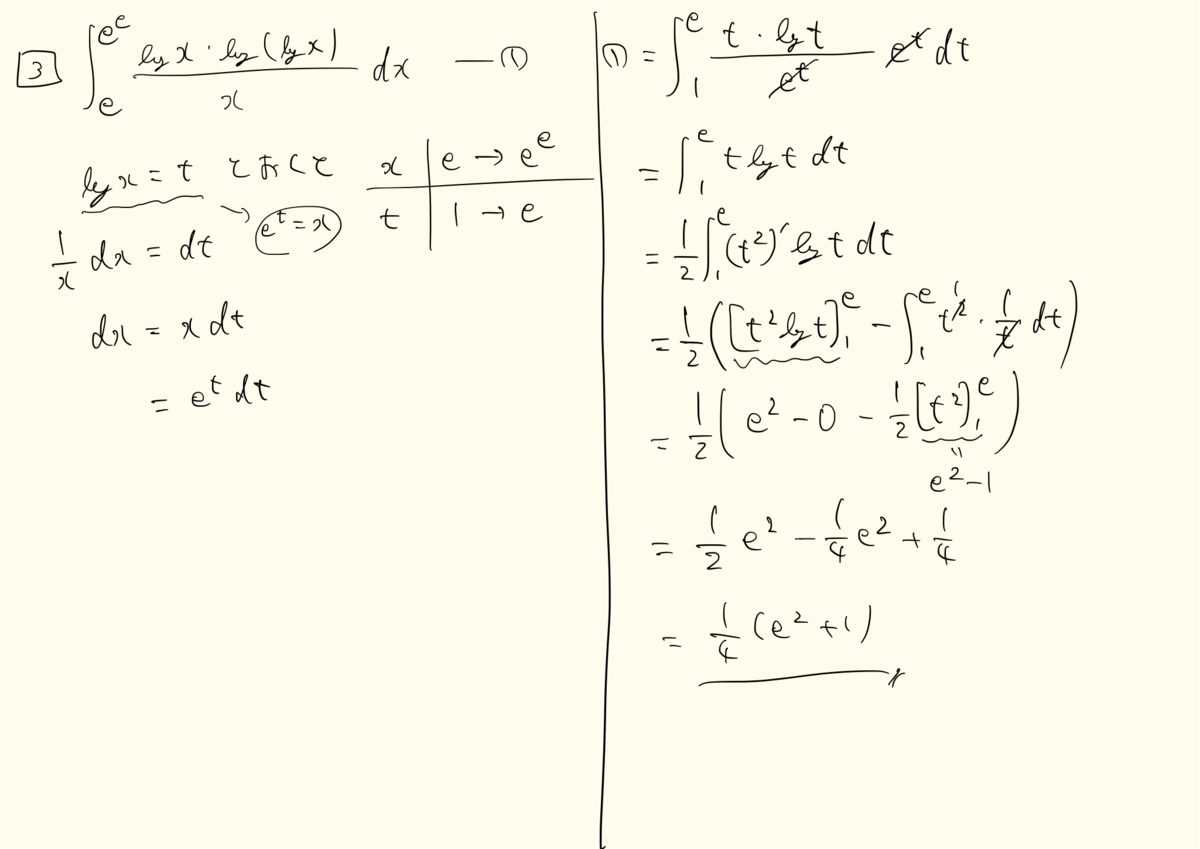 3 ∫_e^{e^e} (log x · log(log x))/x dx —①
log x = t とおくと
→ e^t = x
x | e → e^e
t | 1 → e
1/x dx = dt
dx = x dt
= e^t dt
① = ∫_1^e (t · log t)/e^t e^t dt
= ∫_1^e t log t dt
= 1/2 ∫_1^e (t^2)' log t dt
= 1/2 ([t^2 log t]_1^e - ∫_1^e t^2 · 1/t dt)
= 1/2 (e^2 - 0 - 1/2 [t^2]_1^e)
〃
e^2 - 1
= 1/2 e^2 - 1/4 e^2 + 1/4
= 1/4 (e^2 + 1)